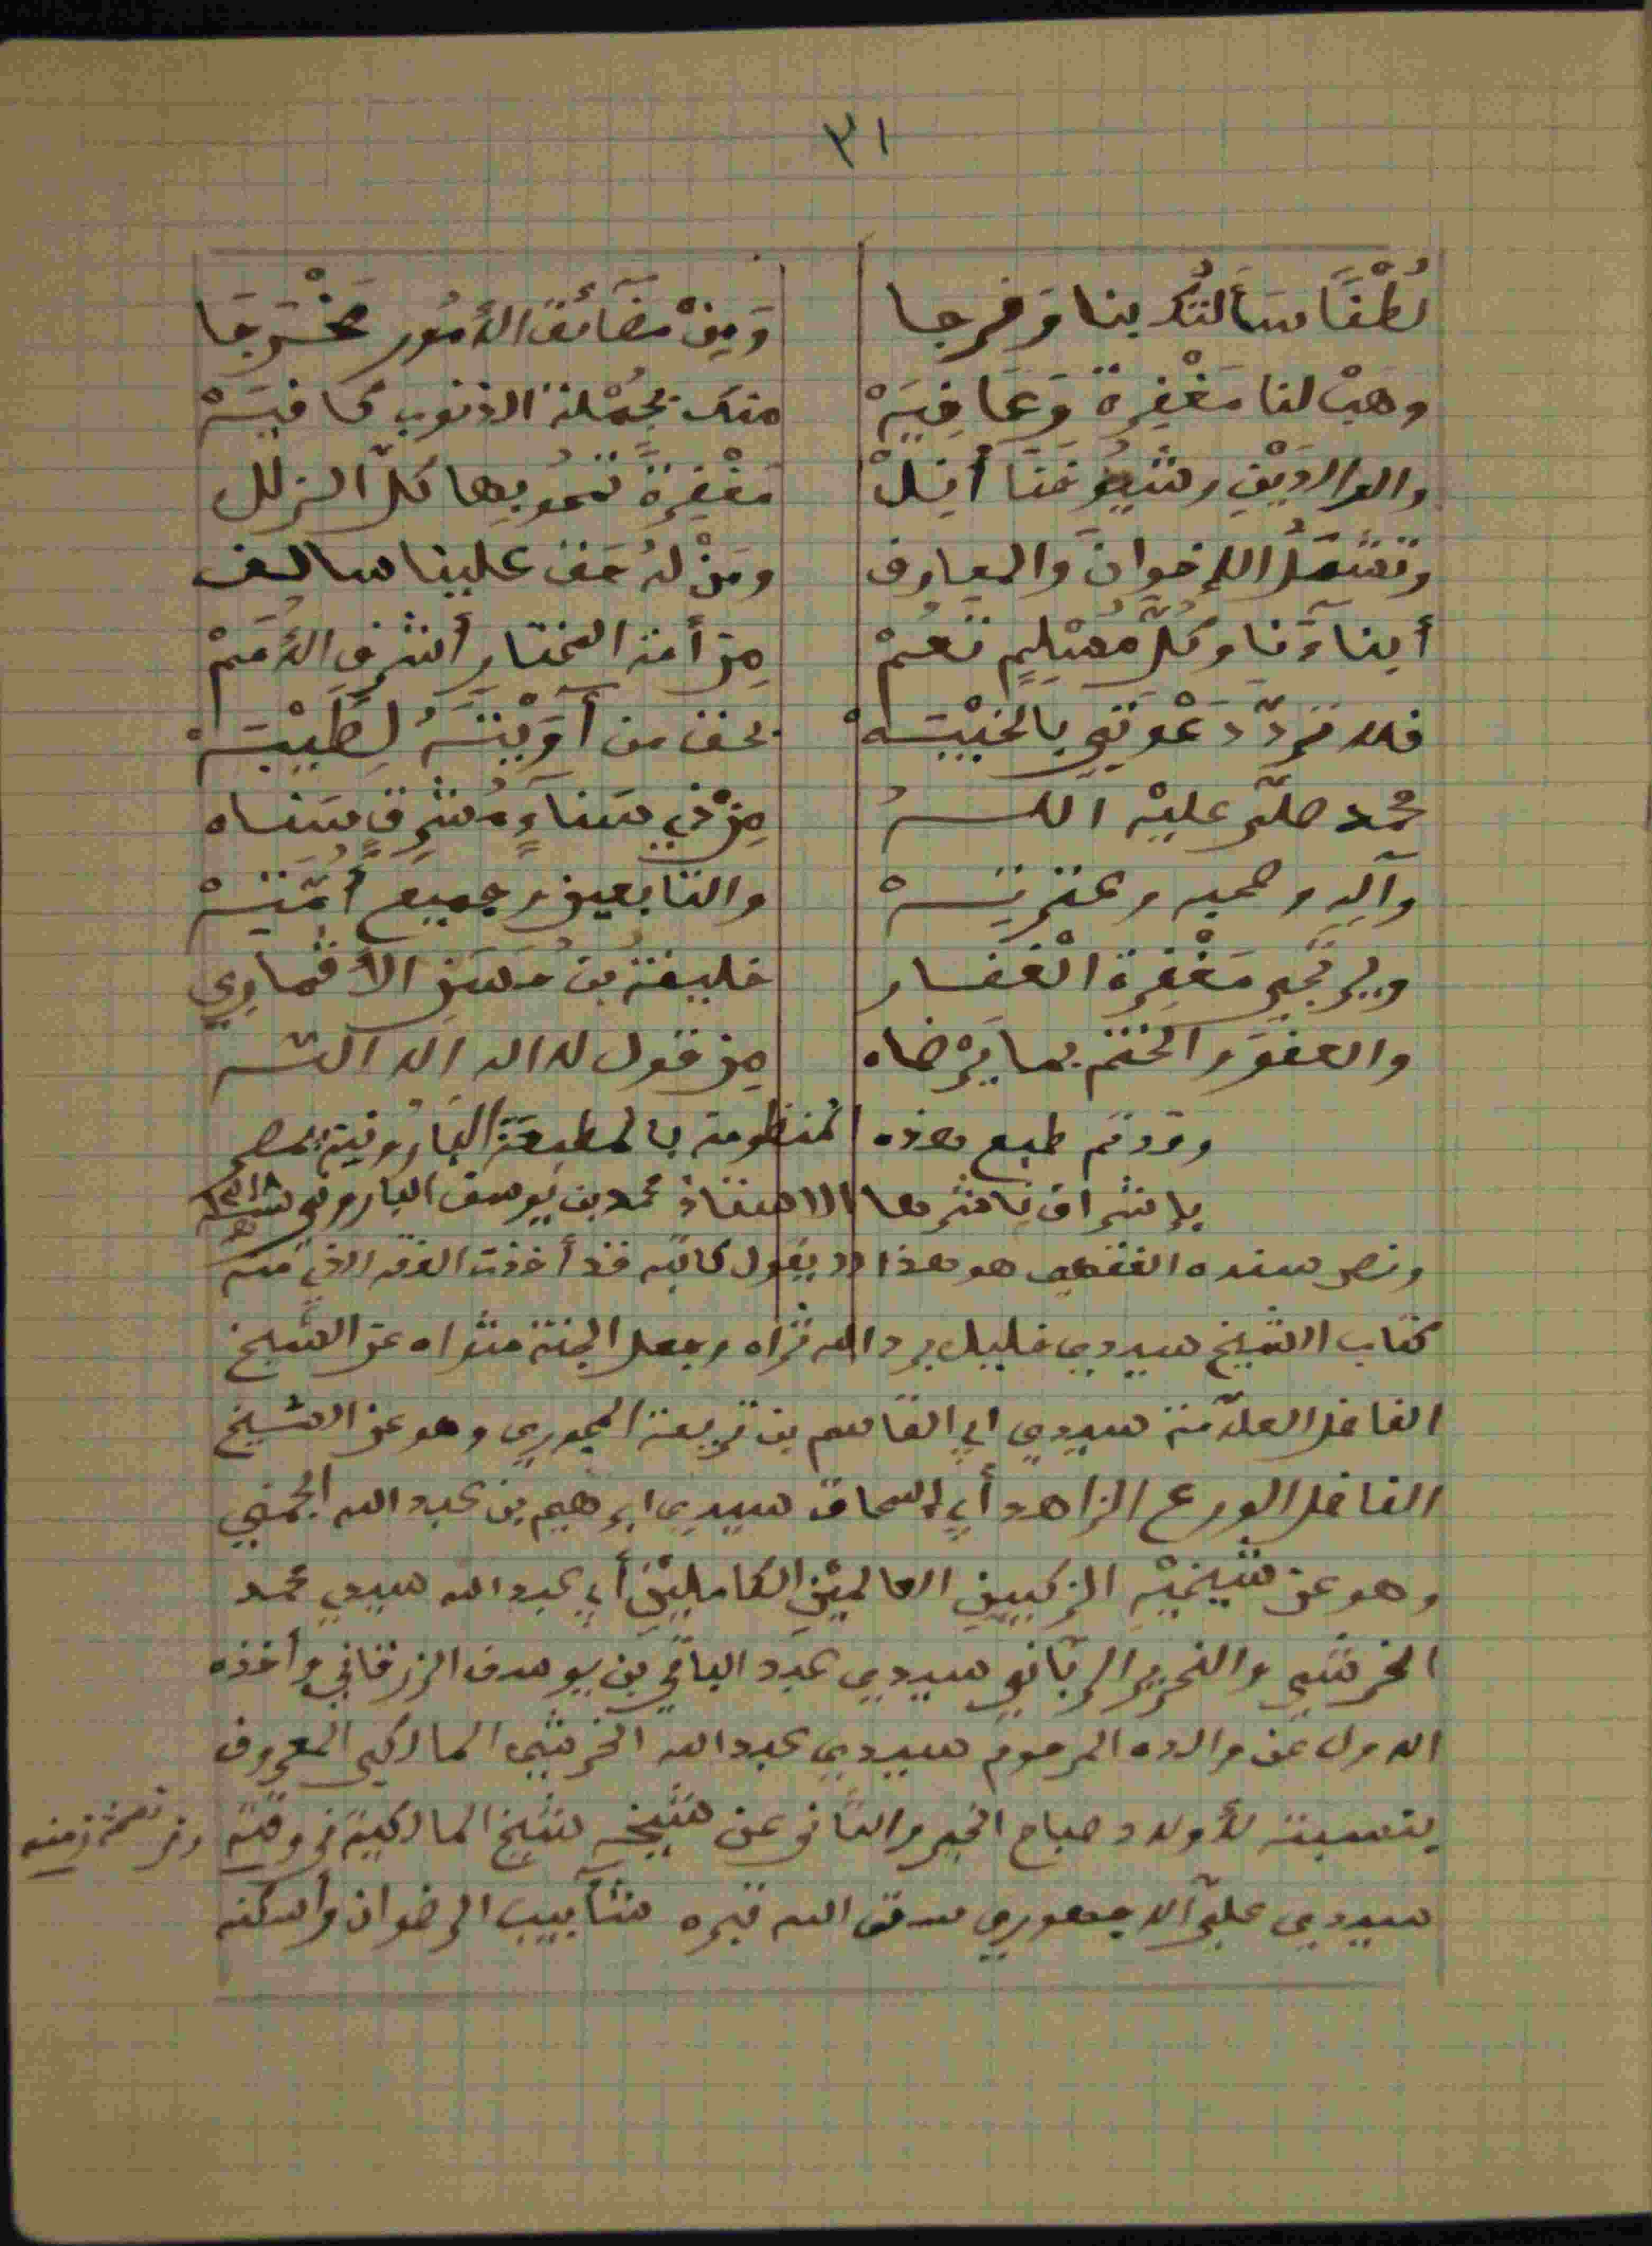 ٣١
لُطْفًا سَأَلتُكَ بنا وَفرجا وَمِنْ مَضَآئقِ الأُمُور مَخْرَجَا
وهَبْ لنا مَغْفِرة وَعَافِيَهْ منك بجُمْلة الذنوب كافيَهْ
والوالدَيْنِ وشُيُوخَنَا أَنِلْ مَغْفِرةً تمحُو بِها كلَّ الزلل
وتشمَلُ الإخوانَ والمعارف ومَنْ لهُ حَق علينا سالف
أبناءَنا وكُلَّ مُسْلِمٍ تَعُمْ مِن أمة المختار أشرف الأُمَمْ
فلا تردّ دَعْوَتِي بالخَيْبَهْ بحق من آوَيْتَهُ لِطَيْبَهْ
محمد صلّى عليْه اللهُ مِنْ ذي سَنآءٍ مُشرِقٍ سَناه
وآلِه وصحبه وعترتِهْ والتابعين وجميع أُمَّتِهْ
ويرتجي مَغْفِرة الْغفار خليفةُ بنُ حَسَنِ الأقماري
والعفوَ والختم بما يَرْضاه مِن قول لا اله الا اللـه
وقد تم طبع هذه المنظومة بالمطبعَة البَارُونية بمصر
بإشراف ناشرها الاستاذ محمد بن يوسف الباروني سنة ١٣١٨ هـ
ونص سنده الفقهي هو هذا (( يقول كاتبه قد أخذت الفقه الذي منه
كتاب الشيخ سيدي خليل برد الله ثراه وجعل الجنة مثواه عن الشيخ
الفاضل العلاّمة سيدي ابي القاسم بن تريعة الجوري وهو عن الشيخ
الفاضل الورع الزاهد أبي إسحاق سيدي ابرهيم بن عبد الله الجُمني
وهو عن شَيْخَيْهِ الزكيين العالِمَيْنِ الكامِلَيْنِ أبي عبد الله سيدي محمد
الخرشي والنحرير الربّاني سيدي عبد الباقي بن يوسف الزرقاني وأخذه
الاول عَن والده المرحوم سيدي عبد الله الخرشي المالكي المعروف
بنسبته لأولاد صباح الخير والثاني عن شيخه شيخ المالكية في وقته وفي زمنه
سيدي عليّ الاجهوري سقى الله قبره شآبيب الرضوان وأسكنه